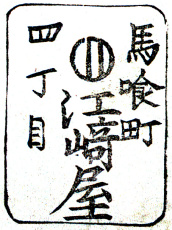 馬喰町
江崎屋
四丁目